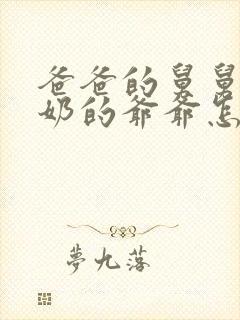 爸爸的舅舅
奶的爷爷怎
夢九落